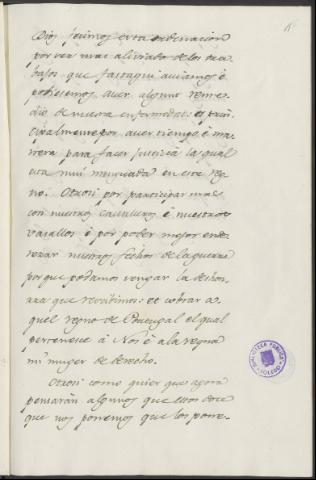 Dios fecimos esta ordenacion
por ser mas aliviado de los tra-
bajos que fastaqui aviamos é
podiesemos aver algund reme-
dio de nuestra enfermedat: é prin-
cipalmente por aver tiempo, é ma-
nera para facer justicia la qual
era mui menguada en este reg-
no. Otrosi por participar mas
con nuestros cavalleros é nuestros
vasallos é por poder mejor ende-
rezar nuestros fechos de la guerra
porque podamos vengar la deshon-
rra que recebimos: et cobrar a-
quel regno de Portugal el qual
pertenesce á Nos é á la reyna
mi muger de derecho.
Otrosi como quier que agora
pensarán algunos que estos doce
que nos ponemos que los pone-